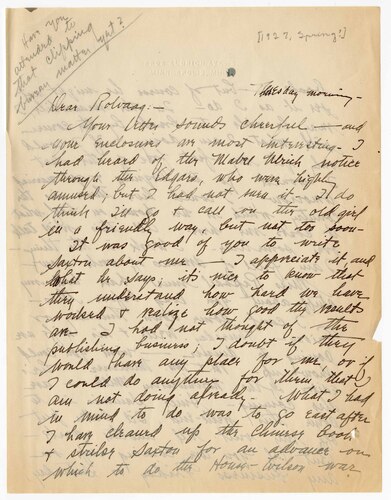 Have you
attended to
that clipping
bureau matter
yet?
[1927, Spring?]
Tuesday morning -
Dear Rolvaag: -
Your letter sounds cheerful - and
your enclosures are most interesting. I
had heard of the Mabel Ulrich notice
through the Edgars, who were highly
amused; but I had not seen it - I do
think I'll go & call on the old girl
in a friendly way, but not too soon -
It was good of you to write
Saxton about me - I appreciate it, and
what he says; it's nice to know that
they understand how hard we have
worked & realize how good the results
are - I had not thought of the
publishing business; I doubt if they
would have any place for me, or if
I could do anything for them that I
am not doing already - What I had
in mind to do was to go east after
I have cleaned up the Chinese book
& strike Saxton for an advance on
which to do the House-Wilson war